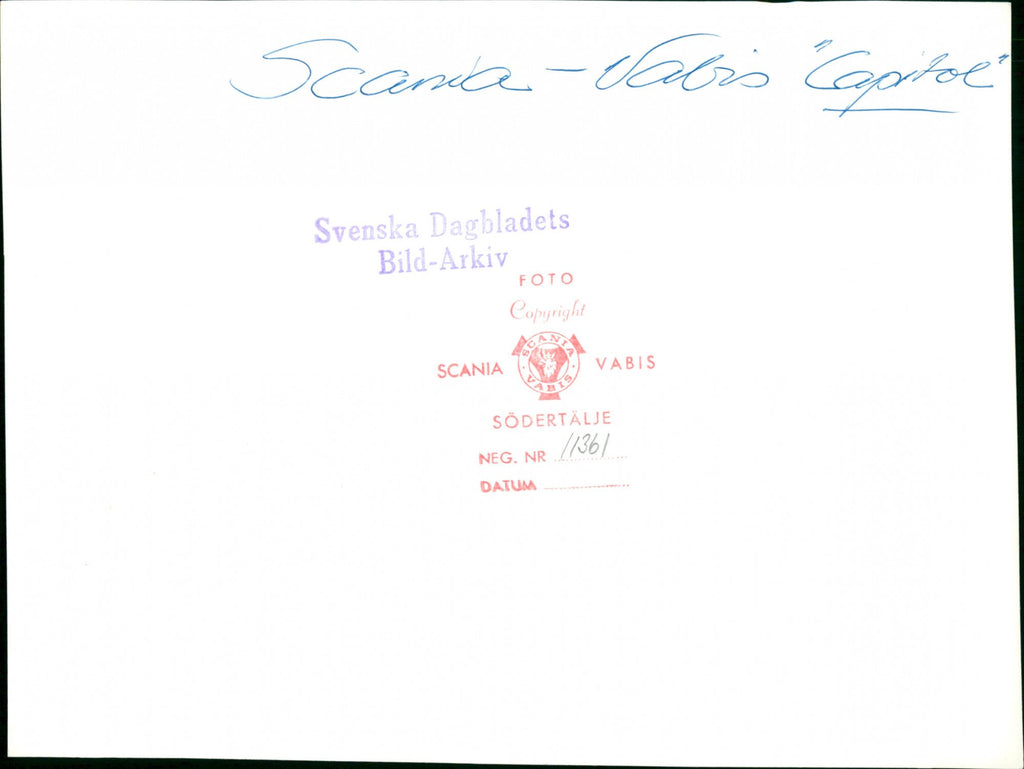 Scania - Vabis "Capitol"
Svenska Dagbladets
Bild-Arkiv
FOTO
Copyright
SCANIA VABIS
SCANIA VABIS
SÖDERTÄLJE
NEG. NR 11361
DATUM